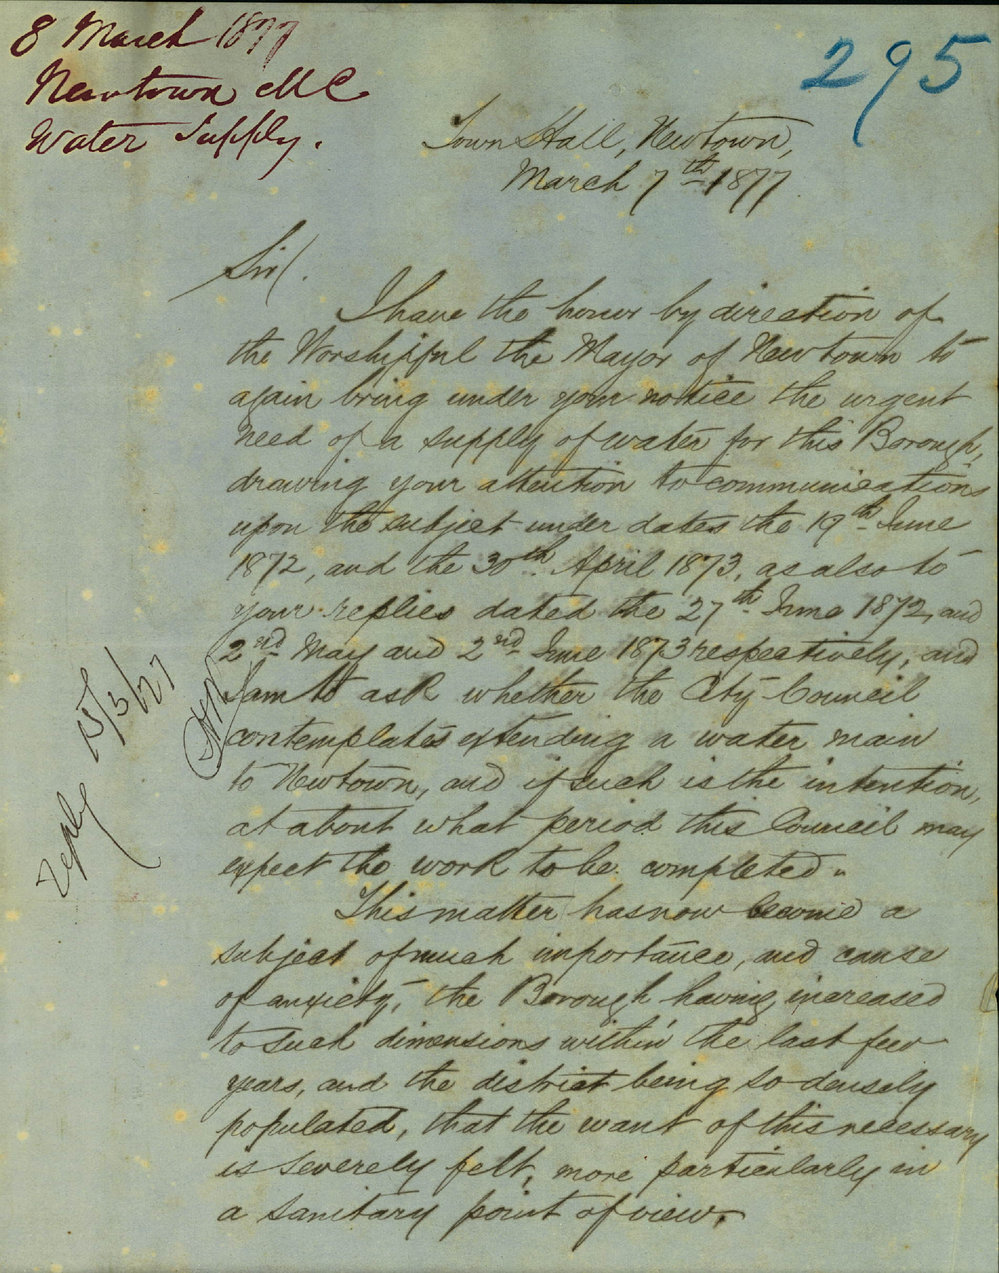 8 March 1877
Newtown M C
Water Supply.
295
Town Hall, Newtown,
March 7th 1877
Sir/.
I have the honor by direction of
the Worshipful the Mayor of Newtown to
again bring under your notice the urgent
need of a supply of water for this Borough,
drawing your attention to communications
upon the subject under dates the 19th June
1872, and the 30th April 1873, as also to
your replies dated the 27th June 1872, and
2nd May and 2nd June 1873 respectively, and
I am to ask whether the City Council
contemplates extending a water main
to Newtown, and if such is the intention,
at about what period this Council may
expect the work to be completed.
This matter has now become a
subject of much importance, and cause
of anxiety, the Borough having increased
to such dimensions within the last few
years, and the district being so densely
populated, that the want of this necessary
is severely felt, more particularly in
a sanitary point of view.
Reply 15/3/77